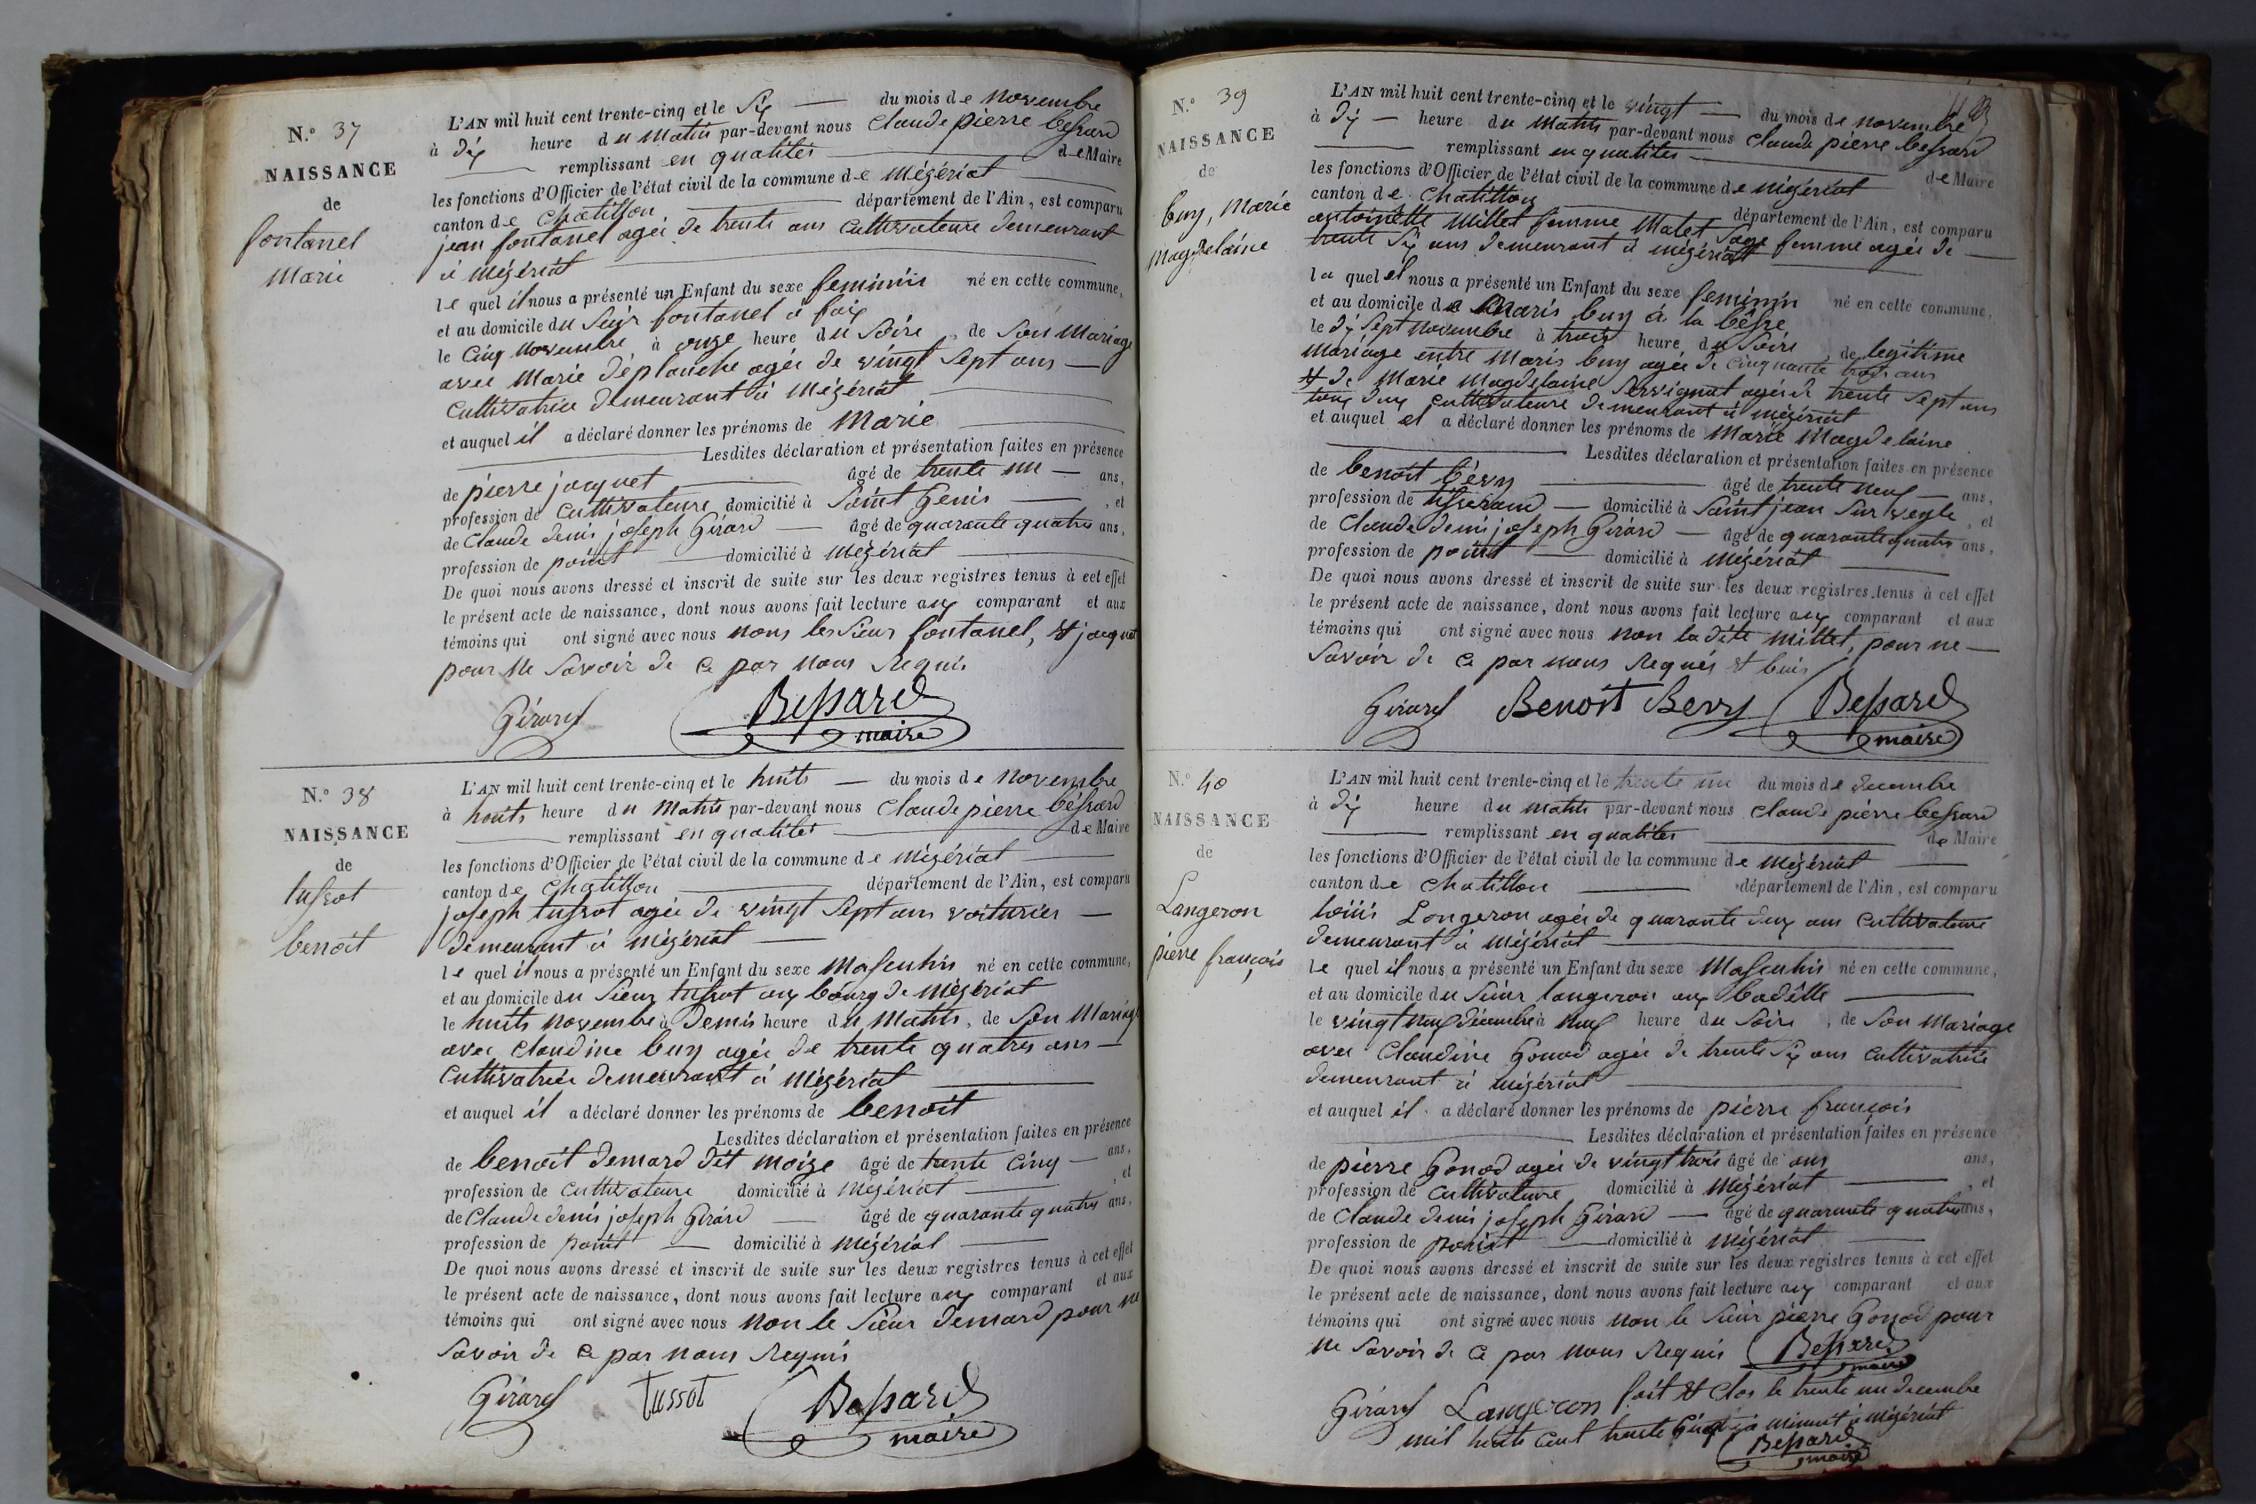 N.° 37
NAISSANCE
de
fontanel
marie
L'AN mil huit cent trente-cinq et le Six du mois de novembre
à dix heure du matin par-devant nous Claude pierre bessard
remplissant en qualités de Maire
les fonctions d'Officier de l'état civil de la commune de mézériat
canton de chatillon département de l'Ain, est comparu
jean fontanel agée de trente ans cultivateure demeurant
à mézériat
le quel il nous a présenté un Enfant du sexe feminin né en cette commune,
et au domicile du Sieur fontanel à
le Cinq novembre à onze heure du Soire, de Son Mariage
avec Marie déplanche agée de vingt Sept ans
Cultivatrice demeurant à mézériat
et auquel il a déclaré donner les prénoms de Marie
Lesdites déclaration et présentation faites en présence
de pierre jacquet âgé de trente un ans,
profession de Cultivateure domicilié à Saint Genis, et
de Claude denis joseph Girard âgé de quarante quatre ans,
profession de domicilié à Mézériat
De quoi nous avons dressé et inscrit de suite sur les deux registres tenus à cet effet
le présent acte de naissance, dont nous avons fait lecture aux comparant et aux
témoins qui ont signé avec nous nons les Sieur fontanel, et jacquet
pour ne Savoir de ce par nous Requis
Girard Bessard
maire
N.° 38
NAISSANCE
de
tussot
benoit
L'AN mil huit cent trente-cinq et le huits du mois de novembre
à houits heure du Matin par-devant nous Claude pierre béssard
remplissant en qualités de Maire
les fonctions d'Officier de l'état civil de la commune de mézériat
canton de Chatillon département de l'Ain, est comparu
joseph tussot agée de vingt Sept ans voiturier
demeurant à mézériat
le quel il nous a présenté un Enfant du sexe Masculin né en cette commune,
et au domicile du Sieur tussot aux bourg de Mézériat
le huits novembre à Demis heure du Matin, de Son Mariage
avec Claudine buy agée de trente quatres ans
Cultivatrice demeurant à mézériat
et auquel il a déclaré donner les prénoms de benoit
Lesdites déclaration et présentation faites en présence
de benoit demard dit moize âgé de trente Cinq ans,
profession de Cultivateure domicilié à Mézériat, et
de Claude denis joseph Girard âgé de quarante quatre ans,
profession de domicilié à Mézériat
De quoi nous avons dressé et inscrit de suite sur les deux registres tenus à cet effet
le présent acte de naissance, dont nous avons fait lecture aux comparant et aux
témoins qui ont signé avec nous non le Sieur demard pour ne
Savoir de ce par nous Requis
Girard Tussot Bessard
maire
N.° 39
NAISSANCE
de
buy, Marie
magdelaine
L'AN mil huit cent trente-cinq et le vingt du mois de novembre
à dix heure du Matin par-devant nous Claude pierre bessard
remplissant en qualités de Maire
les fonctions d'Officier de l'état civil de la commune de mézériat
canton de Chatillon département de l'Ain, est comparu
antoinette millet femme Malet Sage femme agée de
trente Six ans demeurant à mézériat
la quel el nous a présenté un Enfant du sexe feminin né en cette commune,
et au domicile de Maris buy à la
le dix Sept novembre à trois heure du Soire, de legitime
mariage entre Maris buy agée de Cinquante trois ans
et de Marie Magdelaine agée de trente Sept ans
tous deux Cultivateure demeurant à mézériat
et auquel el a déclaré donner les prénoms de Marie Magdelaine
Lesdites déclaration et présentation faites en présence
de benoit bérry âgé de trente neuf ans,
profession de tisserand domicilié à Saint jean Sur veyle, et
de Claude denis joseph Girard âgé de quarante quatre ans,
profession de domicilié à Mézériat
De quoi nous avons dressé et inscrit de suite sur les deux registres tenus à cet effet
le présent acte de naissance, dont nous avons fait lecture aux comparant et aux
témoins qui ont signé avec nous non la dite millet, pour ne
Savoir de ce par nous Requis et
Girard Benoit Berry Bessard
maire
N.° 40
NAISSANCE
de
Langeron
pierre françois
L'AN mil huit cent trente-cinq et le trente un du mois de decembre
à dix heure du matin par-devant nous Claude pierre bessard
remplissant en qualités de Maire
les fonctions d'Officier de l'état civil de la commune de mézériat
canton de Chatillon département de l'Ain, est comparu
Louis Langeron agée de quarante deux ans Cultivateure
demeurant à mézériat
le quel il nous a présenté un Enfant du sexe Masculin né en cette commune,
et au domicile du Sieur langeron aux
le vingt neuf décembre à neuf heure du Soire, de Son Mariage
avec Claudine Gonod agée de trente Six ans Cultivatrice
demeurant à mézériat
et auquel il a déclaré donner les prénoms de pierre françois
Lesdites déclaration et présentation faites en présence
de pierre Gonod agée de vingt trois âgé de ans ans,
profession de Cultivateure domicilié à Mézériat, et
de Claude denis joseph Girard âgé de quarante quatre ans,
profession de domicilié à Mézériat
De quoi nous avons dressé et inscrit de suite sur les deux registres tenus à cet effet
le présent acte de naissance, dont nous avons fait lecture aux comparant et aux
témoins qui ont signé avec nous non le Sieur pierre Gonod pour
ne Savoir de ce par nous Requis Bessard
maire
Girard Langeron fait et clos le trente un decembre
mil huits cent trente Cinq à minuit à mézériat
Bessard
maire